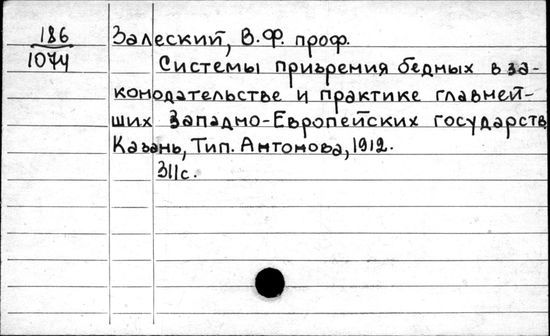 186
1074
Залеский, В.Ф. проф.
Системы призрения бедных в за-
конодательстве и практике главней-
ших Западно-Европейских государств
Казань, Тип. Антонова, 1912.
311с.